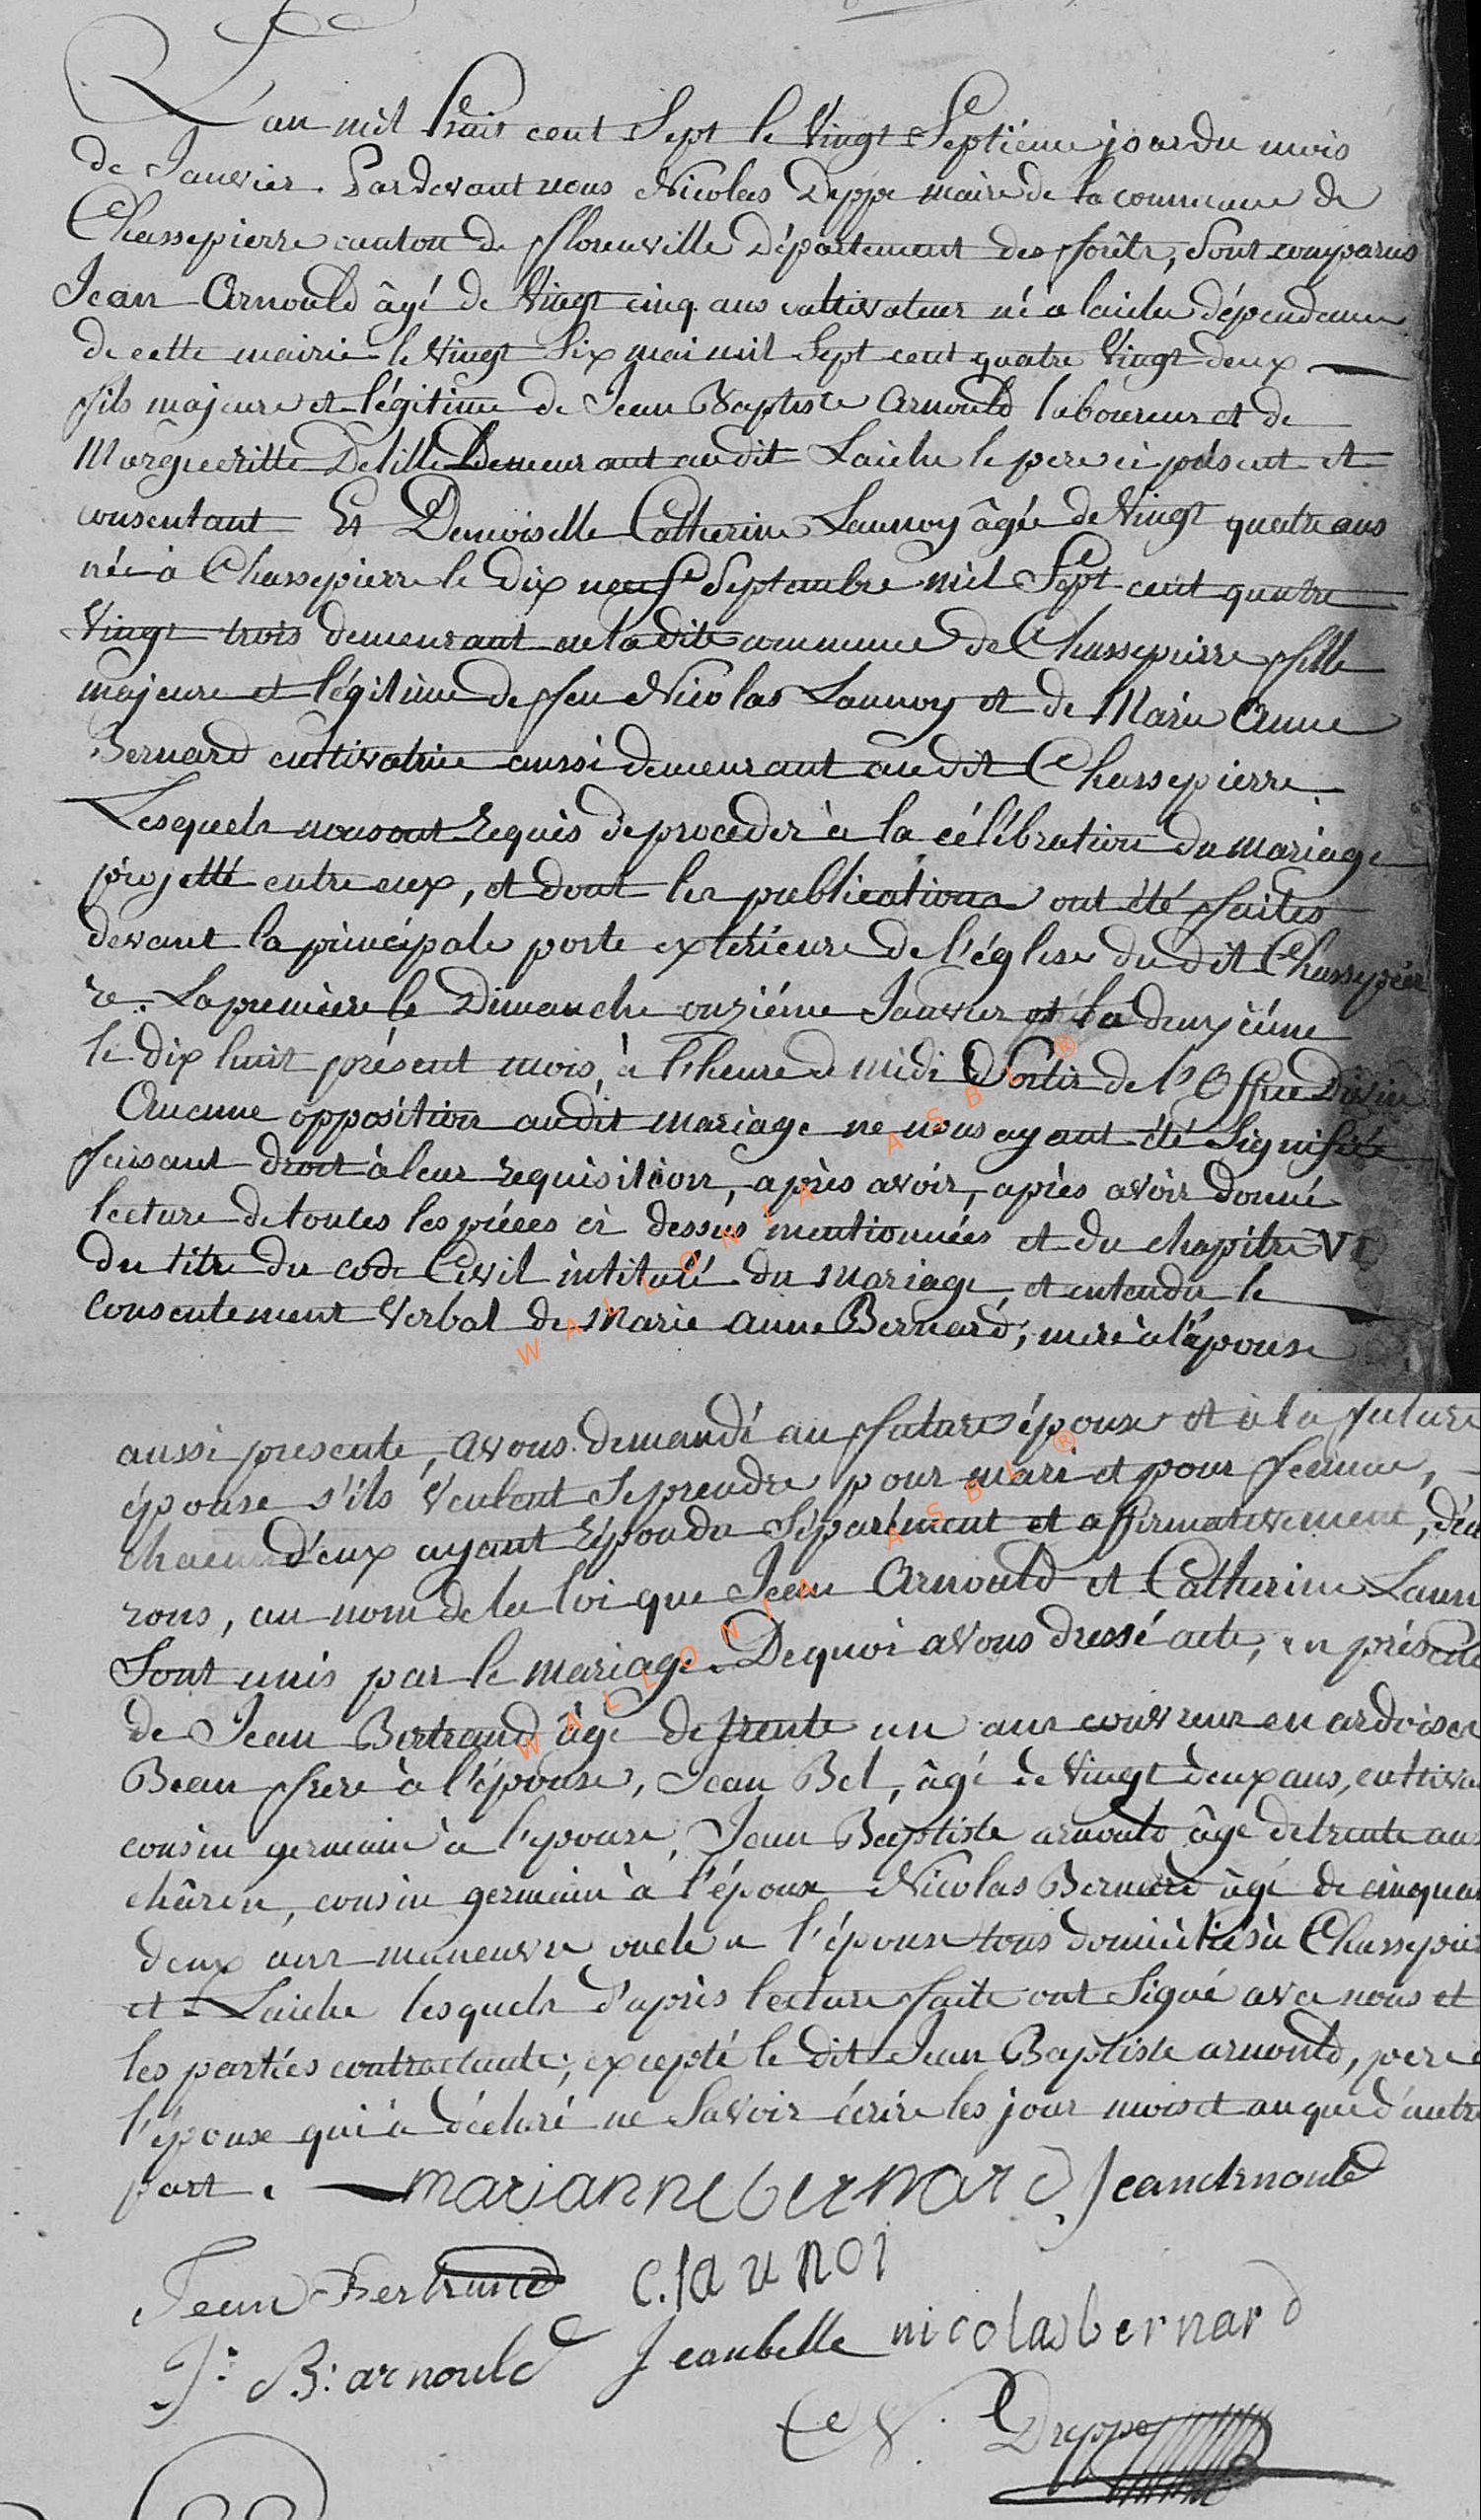 L'an mil huit cent Sept le Vingt Septième jour du mois
de Janvier. Pardevant nous Nicolas Deppe maire de la commune de
Chassepierre canton de fflorenville Département des fforêts, Sont comparus
Jean Arnould âgé de Vingt cinq ans cultivateur né a laiche dépendance
de cette mairie le Vingt Six mai mil Sept cent quatre Vingt deux
fils majeure et légitime de Jean Baptiste Arnould laboureur et de
Margueritte Delille Demeurant audit Laiche le pere ci présent et
consentant Et Demoiselle Catherine Launoy âgée de Vingt quatre ans
née à Chassepierre le Dix neuf Septembre mil Sept cent quatre
Vingt trois demeurant en la dite commune de Chassepierre ffille
majeure et légitime de ffeu Nicolas Launoy et de Marie Anne
Bernard cultivatrice aussi demeurant audit Chassepierre.
Lesquels nous ont Requis de proceder à la célébration du mariage
projetté entre eux, et dont les publications ont été ffaites
devant la principale porte extérieure de l'église du dit Chassepier
re. La première le Dimanche onzième Janvier et la deuxième
le dix huit présent mois, à l'heure de midi Sortir de l'Office Divin
Aucune opposition audit mariage ne nous ayant été Signifiée
faisant droit à leur requisition, après avoir, après avoir donné
lecture de toutes les pièces ci dessus mentionnées et du chapitre VI
du titre du code Civil intitulé du mariage, et entendu le
consentement Verbal de Marie Anne Bernard, mere à l'épouse
aussi presente, avons demandé au ffuture épouse et à la ffuture
épouse s'ils Veulent Se prendre pour mari et pour femme,
chacun d'eux ayant répondu Séparément et affirmativement, décla
rons, au nom de la loi que Jean Arnould et Catherine Laun
Sont unis par le mariage. De quoi avons dressé acte, en présence
de Jean Bertrand âgé de trente un ans couvreur en ardoises
Beau ffrere à l'épouse, Jean Bel, âgé de Vingt deux ans, cultiva
cousin germain à l'épouse, Jean Baptiste arnould âgé de trente ans
châron, cousin germain à l'époux Nicolas Bernard âgé de cinquan
deux ans maneuvre oncle a l'épouse tous domiciliés à Chassepier
et Laiche lesquels d'après lecture ffaite ont Signé avec nous et
les parties contractante, excepté le dit Jean Baptiste arnould, pere
l'époux qui à déclaré ne Savoir écrire les jour mois et an que d'autre
part. mariannebernard Jean Arnould
Jean Bertrand C. launoi
J: B: arnould Jeanbelle nicolas bernard
N. Deppe
WALLONIA ASBL ®
WALLONIA ASBL ®